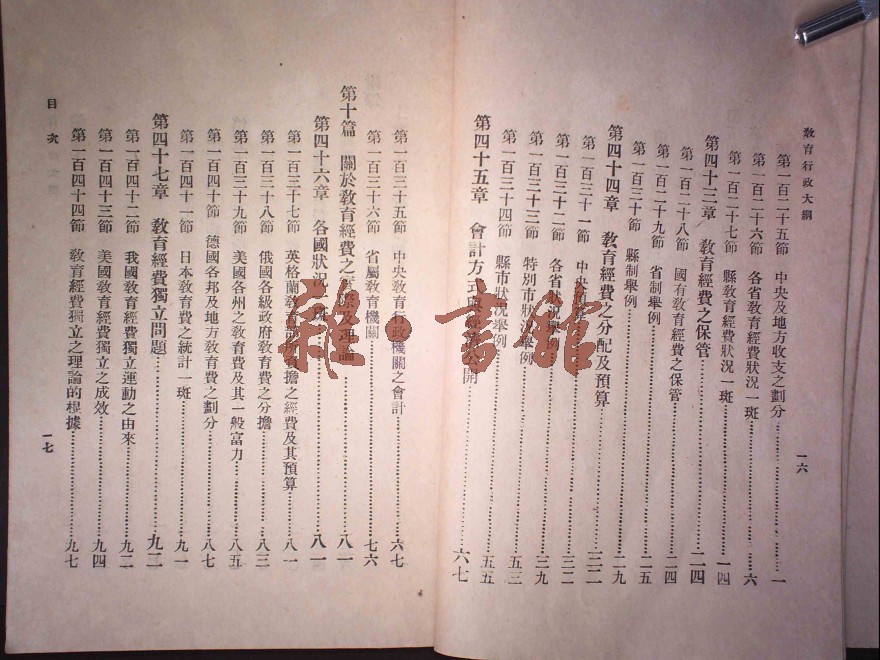 教育行政大綱
第一百二十五節 中央及地方收支之劃分 一
第一百二十六節 各省教育經費狀況一斑 六
第一百二十七節 縣教育經費狀況一斑 一四
第四十三章 教育經費之保管 二四
第一百二十八節 國有教育經費之保管 二四
第一百二十九節 省制舉例 二五
第一百三十節 縣制舉例 二九
第四十四章 教育經費之分配及預算 三二
第一百三十一節 中央預算 三二
第一百三十二節 各省狀況舉例 三二
第一百三十三節 特別市狀況舉例 三九
第一百三十四節 縣市狀況舉例 五三
五五
第四十五章 會計方式與經濟公開 六七
一六
第一百三十五節 中央教育行政機關之會計 六七
第一百三十六節 省屬教育機關 七六
第十篇 關於教育經費之實際及理論 八一
第四十六章 各國狀況一斑 八一
第一百三十七節 英格蘭教育部所負擔之經費及其預算 八一
第一百三十八節 俄國各級政府教育費之分擔 八三
第一百三十九節 美國各州之教育費及其一般富力 八五
第一百四十節 德國各邦及地方教育費之劃分 八七
第一百四十一節 日本教育費之統計一斑 九一
第四十七章 教育經費獨立問題 九二
第一百四十二節 我國教育經費獨立運動之由來 九二
第一百四十三節 美國教育經費獨立之成效 九四
第一百四十四節 教育經費獨立之理論的根據 九七
目次
一七
雅・書館